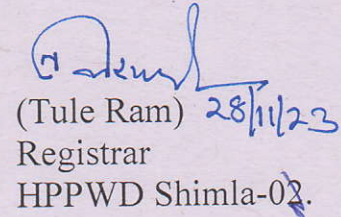 (Tule Ram) 28/11/23
Registrar
HPPWD Shimla-02.